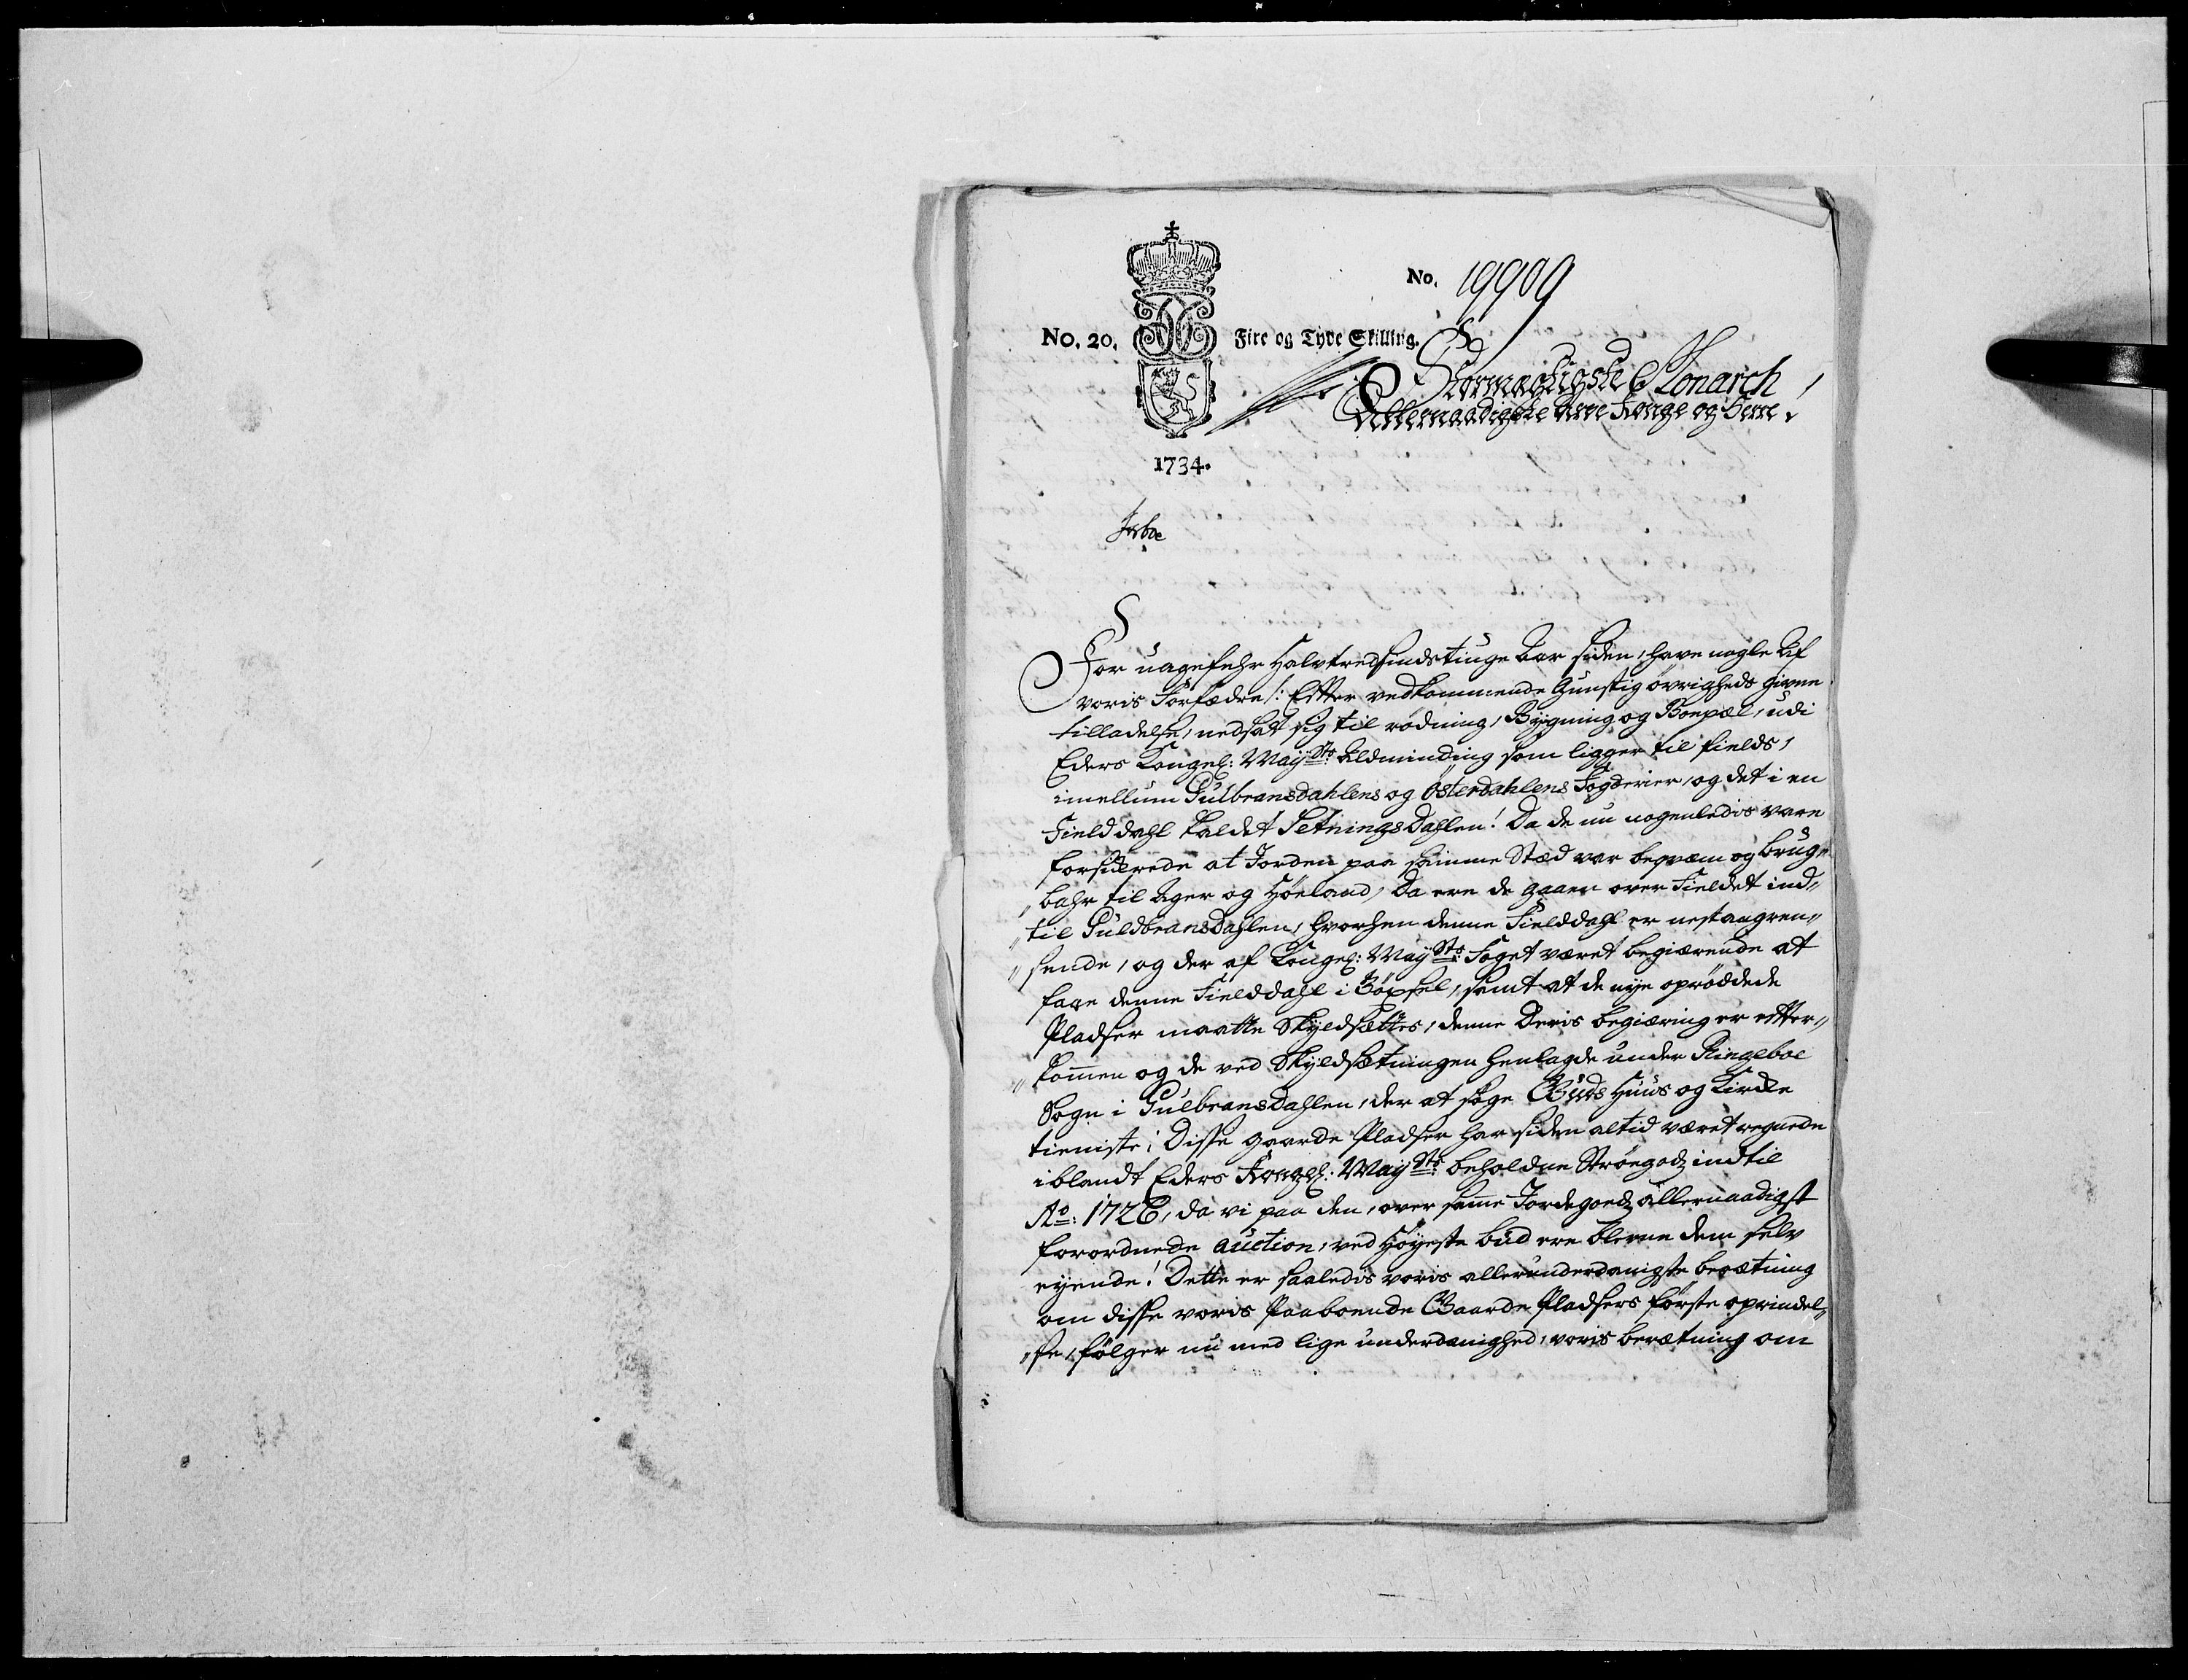 No. 19909
No. 20. Fire og Tyve Skilling.
Stormægtigste Monarch
Allernaadigste Arve Konge og Herre!
1734.
For uagefehr Halvtredsindstiuge Aar siden, have nogle Af
voris Forfædre /: Efter vedkommende Gunstig øvrigheds givne
tilladelse, nedsat sig til rødning, Bygning og Boepæl, udi
Eders Kongel: Mayts: Aldminding som ligger til fields,
imellum Gulbransdahlens og Østerdahlens Fogderier, og det i en
Field dahl kaldet SetningsDahlen! Da de nu nogenledis vare
forsikrede at Jorden paa samme Stæd var beqvæm og brug„
„bahr til Ager og Høeland, Da ere de gaaen over Fieldet ind„
„til GuldbransDahlen, hvorhen denne Fielddahl er nestangren„
„sende, og der af Kongel: Mayts: Foget været begiærende at
faae denne Fielddahl i Bøxsel, samt at de nye oprøddede
Pladser maatte Skyldsættes, denne Deris begiæring er efter„
„kommen og de ved Skyldsætningen henlagde under Ringeboe
Sogn i Gulbransdahlen, der at søge Guds Huus og Kirke
tieniste; Disse gaarde Pladser har siden altid været regnede
iblandt Eders Kongel: Mayts: beholdne Strøegodz indtil
Ao: 1726, da vi paa den, over samme Jordegoedz allernaadigst
forordnede auction, ved Høyeste bud ere blevne dem selv
eyende! Dette er saaledis voris allerunderdanigste beretning
om disse voris Paaboende Gaarde Pladsers første oprindel„
„se, følger nu med lige underdanighed, voris beretning om